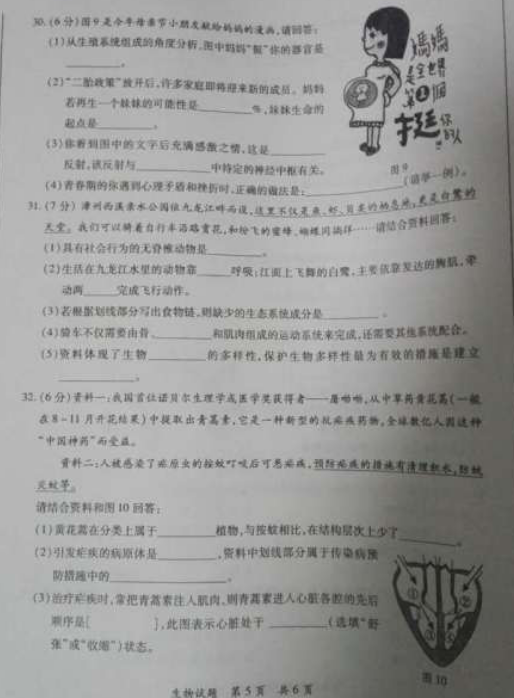 30.(6分)图9是今年母亲节小朋友献给妈妈的漫画,请回答:
(1)从生殖系统组成的角度分析,图中妈妈“挺”你的器官是
________。
(2)“二胎政策”放开后,许多家庭即将迎来新的成员。妈妈
若再生一个妹妹的可能性是________%,妹妹生命的
起点是________。
(3)你看到图中的文字后充满感激之情,这是________
反射,该反射与________中特定的神经中枢有关。
(4)青春期的你遇到心理矛盾和挫折时,正确的做法是:________(请举一例)。
媽媽
是全世界
第1個
挺你的人
图9
31.(7分)漳州西溪亲水公园依九龙江畔而设,这里不仅是鱼、虾、贝类的栖息地,更是白鹭的
天堂。我们可以骑着自行车沿路赏花,和纷飞的蜜蜂、蝴蝶同徜徉……请结合资料回答:
(1)具有社会行为的无脊椎动物是________。
(2)生活在九龙江水里的动物靠____呼吸;江面上飞舞的白鹭,主要依靠发达的胸肌,牵
动两____完成飞行动作。
(3)若根据划线部分写出食物链,则缺少的生态系统成分是________。
(4)骑车不仅需要由骨、________和肌肉组成的运动系统来完成,还需要其他系统配合。
(5)资料体现了生物________的多样性,保护生物多样性最为有效的措施是建立
________。
32.(6分)资料一:我国首位诺贝尔生理学或医学奖获得者——屠呦呦,从中草药黄花蒿(一般
在8-11月开花结果)中提取出青蒿素,它是一种新型的抗疟疾药物,全球数亿人因这种
“中国神药”而受益。
资料二:人被感染了疟原虫的按蚊叮咬后可患疟疾,预防疟疾的措施有清理积水,防蚊
灭蚊等。
请结合资料和图10回答:
(1)黄花蒿在分类上属于________植物,与按蚊相比,在结构层次上少了________。
(2)引发疟疾的病原体是________,资料中划线部分属于传染病预
防措施中的________。
(3)治疗疟疾时,常把青蒿素注入肌肉,则青蒿素进入心脏各腔的先后
顺序是[        ],此图表示心脏处于________(选填“舒
张”或“收缩”)状态。
① ② ③ ④
图10
生物试题 第5页 共6页